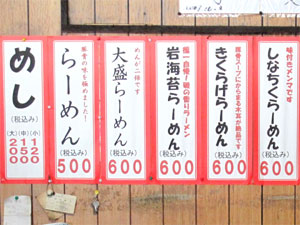 味付きメンマです
しなちくらーめん
(税込み)
600
豚骨スープにからまる木耳が絶品です
きくらげらーめん
(税込み)
600
極一自慢!磯の香りラーメン
岩海苔らーめん
(税込み)
600
めんが二倍です
大盛らーめん
(税込み)
600
豚骨の味を極めました!
らーめん
(税込み)
500
めし
(税込み)
(小)120
(中)150
(大)200